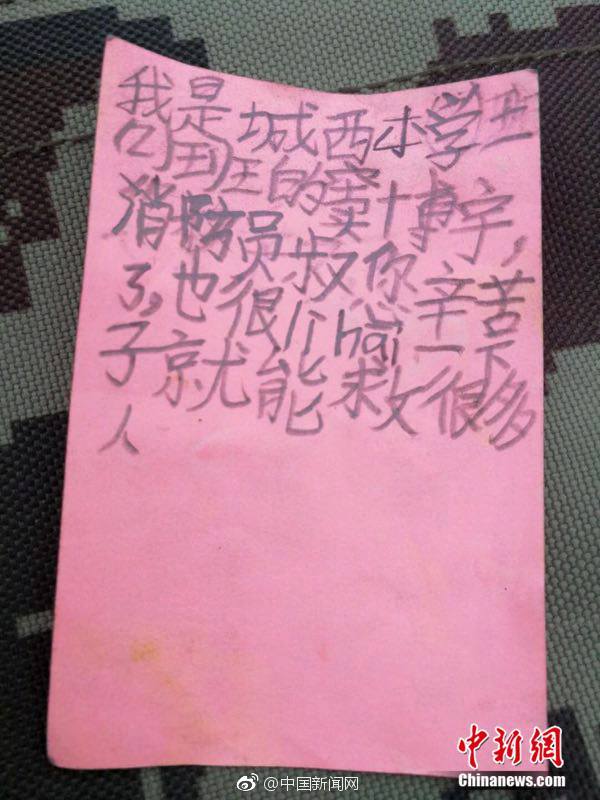 我是城西小学
班的窦博宇，
消防员叔你辛苦
了，也很hai一下
子就能救很多
人
@中国新闻网
中新网
Chinanews.com